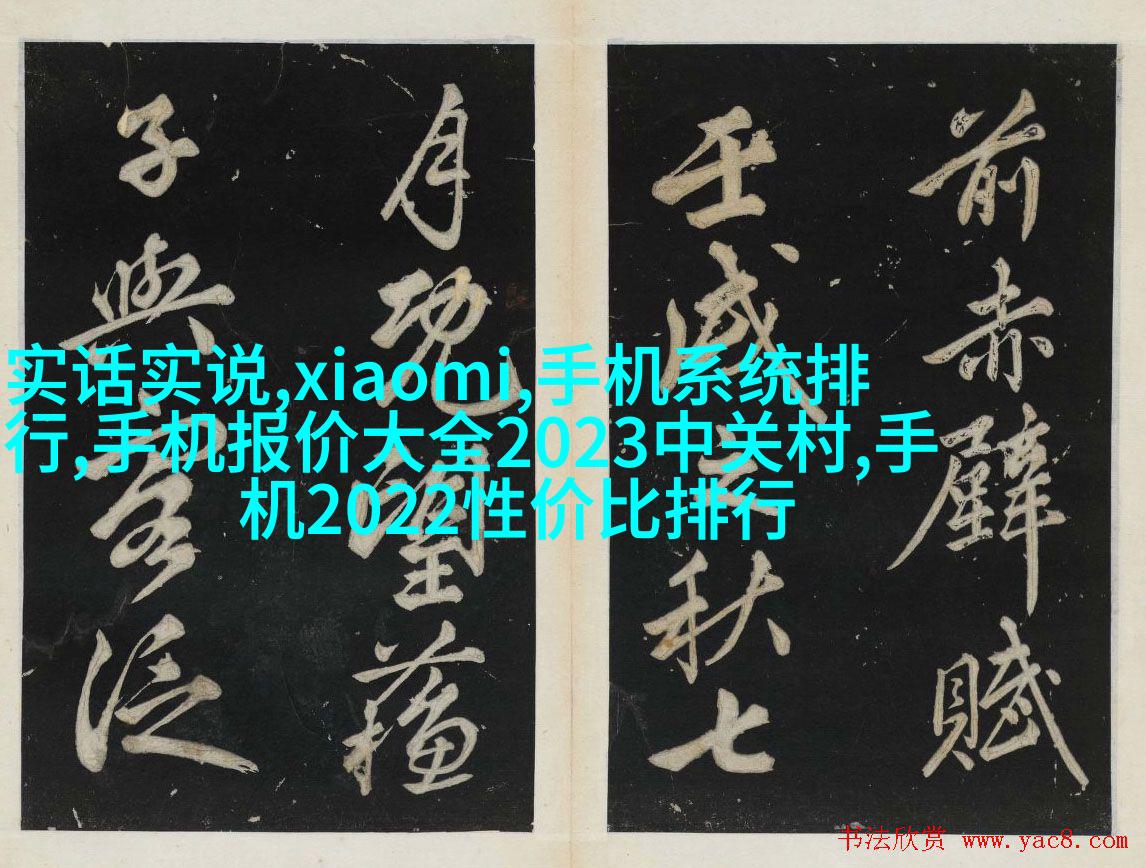 前赤壁賦
壬戌之秋七
月既望蘓
子與客泛
实话实说,xiaomi,手机系统排
行,手机报价大全2023中关村,手
机2022性价比排行
书法欣赏 www.yac8.com